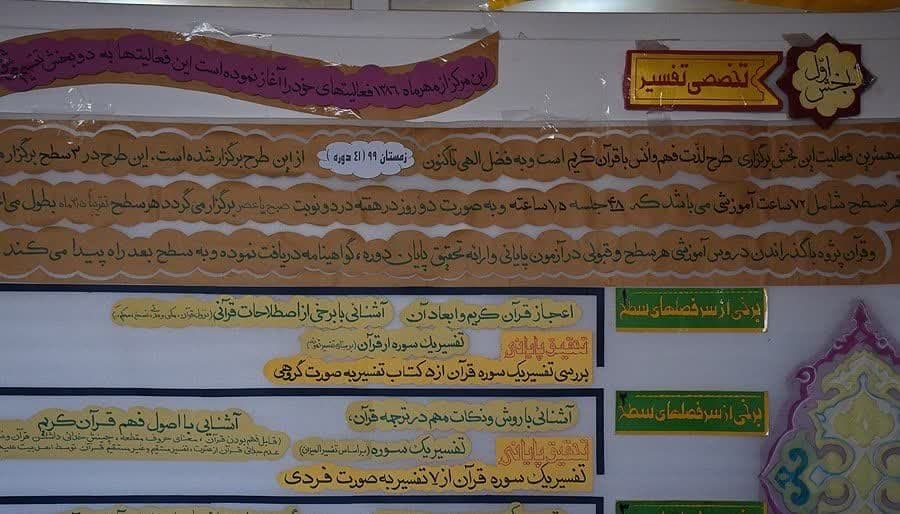 بخش اوّل
تخصصی تفسیر
این مرکز از مهرماه ۱۳۸۶ فعالیتهای خود را آغاز نموده است این فعالیتها به دو بخش تقسیم
مهمترین فعالیت این بخش برگزاری طرح لذت فهم وانس با قرآن کریم است و به فضل الهی تاکنون زمستان ۹۹ (٤١ دوره) از این طرح برگزار شده است. این طرح در ۳ سطح برگزار
هر سطح شامل ۷۲ ساعت آموزشی می باشد که ۴۸ جلسه ۱/۵ ساعته و به صورت دو روز در هفته در دو نوبت صبح یا عصر برگزار می گردد هر سطح تقریباً ماه بطول می
وقرآن پژوه با گذراندن دروس آموزشی هر سطح و قبولی در آزمون پایانی وارائه تحقیق پایان دوره، گواهینامه دریافت نموده و به سطح بعد راه پیدا می کند
برخی از سرفصلهای سطح
اعجاز قرآن کریم و ابعاد آن
آشنائی با برخی از اصطلاحات قرآنی
تفسیر یک سوره از قرآن
تحقیق پایانی
بررسی تفسیر یک سوره قرآن از د کتاب تفسیر به صورت گروهی
برخی از سرفصلهای سطح ۲
آشنائی با روش و نکات مهم در ترجمه قرآن
آشنائی با اصول فهم قرآن کریم
تفسیر یک سوره (بر اساس تفسیر المیزان)
(قابل فهم بودن قرآن، معنای حروف مقطعه،
تحقیق پایانی
تفسیر یک سوره قرآن از ۷ تفسیر به صورت فردی